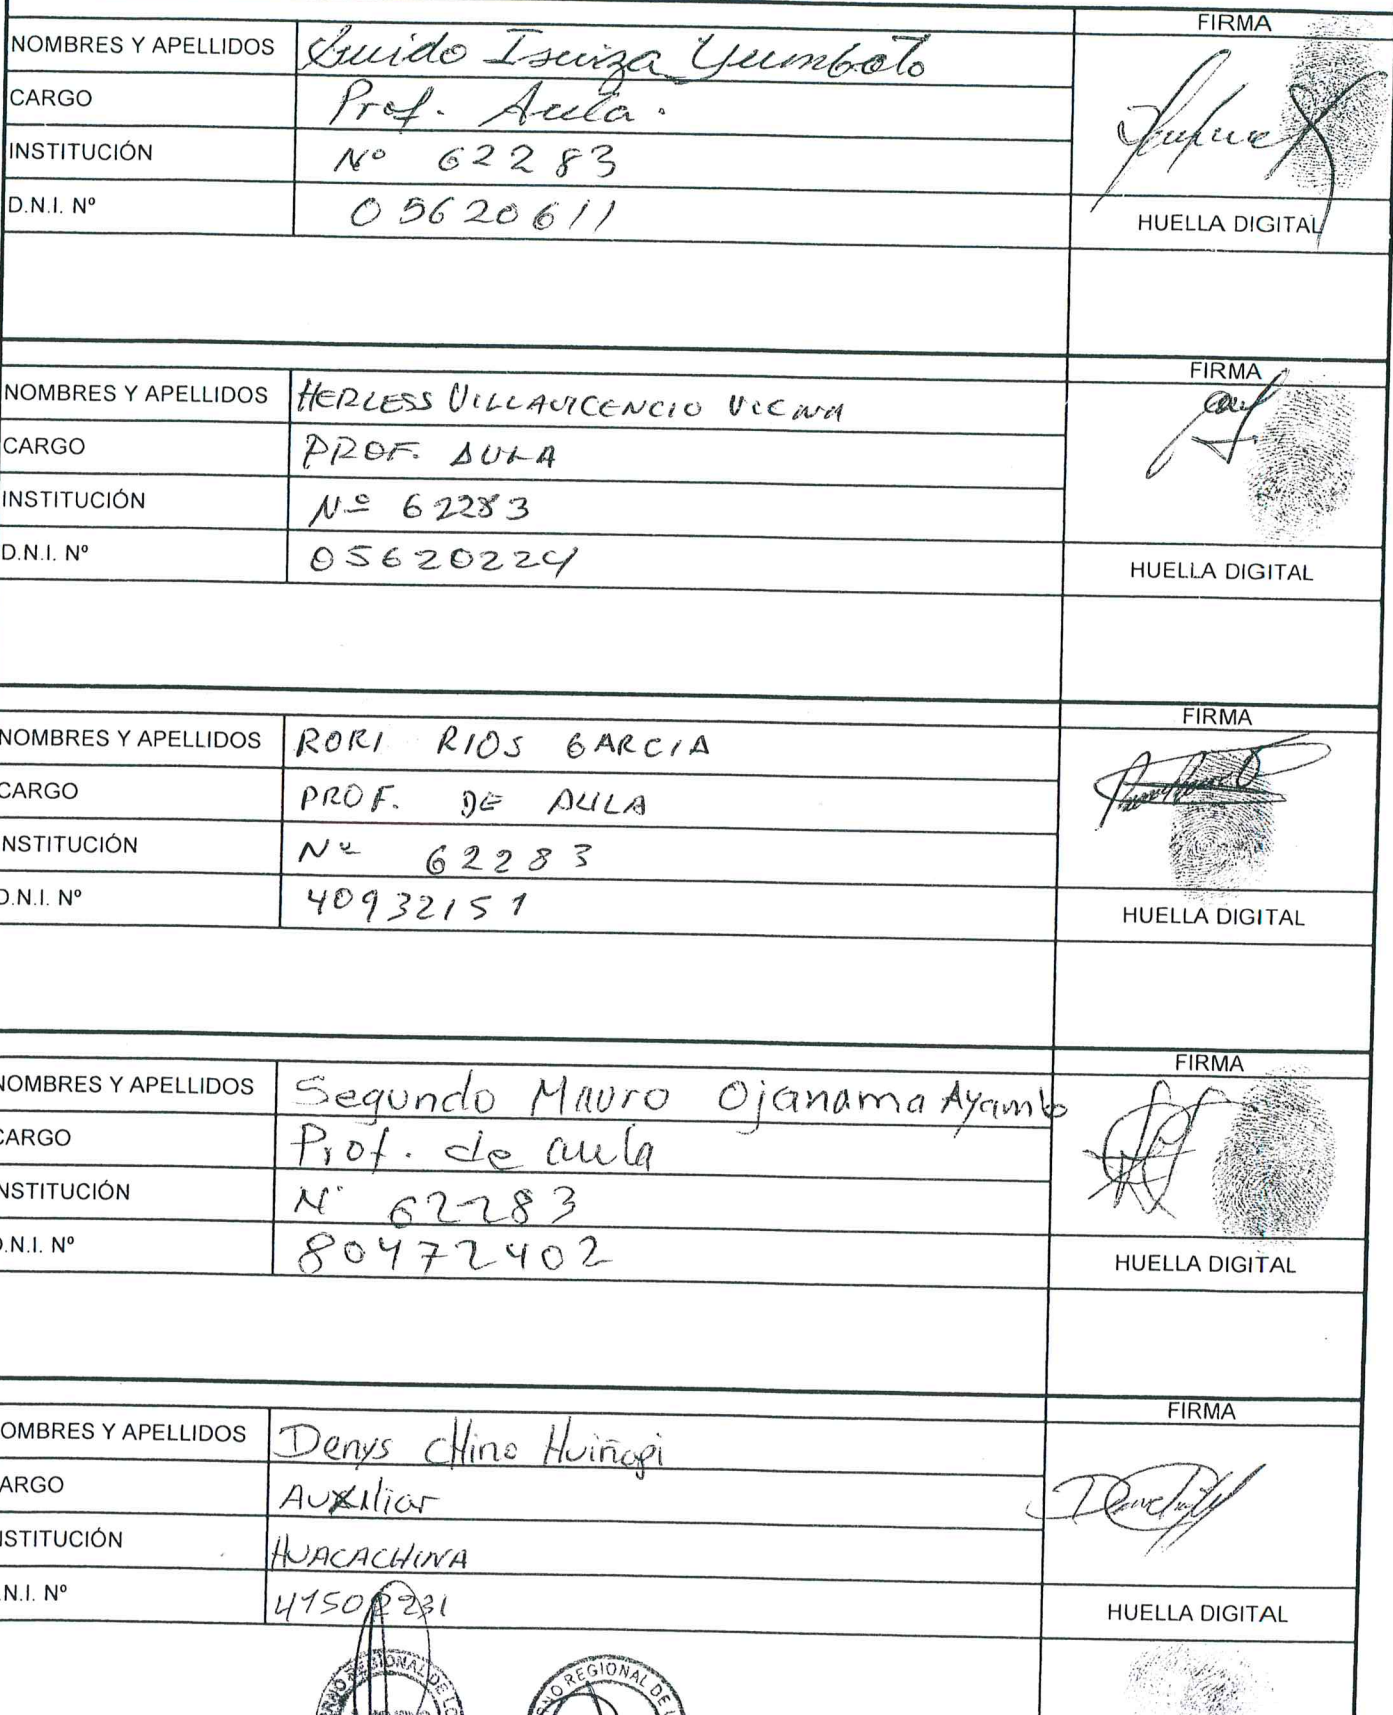 FIRMA
NOMBRES Y APELLIDOS Guido Isuiza Yumbato
CARGO Prof. Aula.
INSTITUCIÓN Nº 62283
D.N.I. Nº 05620611
HUELLA DIGITAL
FIRMA
NOMBRES Y APELLIDOS HERLESS VILLAVICENCIO
CARGO PROF. AULA
INSTITUCIÓN Nº 62283
D.N.I. Nº 05620224
HUELLA DIGITAL
FIRMA
NOMBRES Y APELLIDOS RORI RIOS GARCIA
CARGO PROF. DE AULA
INSTITUCIÓN Nº 62283
D.N.I. Nº 40932151
HUELLA DIGITAL
FIRMA
NOMBRES Y APELLIDOS Segundo Mauro Ojanama Ayambo
CARGO Prof. de aula
NSTITUCIÓN Nº 62283
D.N.I. Nº 80472402
HUELLA DIGITAL
FIRMA
OMBRES Y APELLIDOS Denys CHino Huiñapi
ARGO Auxiliar
STITUCIÓN HUACACHINA
.N.I. Nº
HUELLA DIGITAL
REGIONAL DE
REGIONAL DE